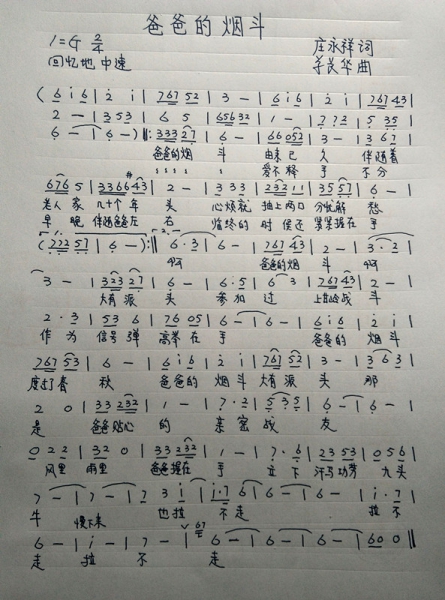 爸爸的烟斗
1=G 2/4 庄永祥 词
回忆地 中速 子茂华 曲
( 6 i 6 | 2 i | 767 52 | 3 - | 6 i 6 | 2 i | 767 43 |
2 - | 3 5 3 | 6 5 | 656 32 | 1 - | 7 7 2 | 5 35 |
6 - | 6 - ) ‖: 333 27 | 6 - | 66 052 | 3 - | 3 67 |
爸爸的烟 斗 由来已 久 伴随着
爱不释 手 不分
676 5 | 33 66 43 | 2 - | 3 3 3 | 232 11 | 35 57 | 6 - |
老人 家 几十个 年 头 心烦就 抽上两口 分忧解 愁
早 晚 伴随爸左 右 临终的 时 侯还 紧紧握在 手
( 222 57 | 6 - ) :‖ 6 · 3 | 6 - | 767 43 | 2 - | 3 · 2 |
啊 爸爸的烟 斗 啊
3 - | 323 27 | 6 - | 6 · 5 | 6 3 | 767 43 | 2 - |
大有派 头 参加 过 上甘岭战 斗
2 · 3 | 5 3 6 | 76 05 | 6 - | 6 - | 6 i 6 | 2 i |
作 为 信号弹 高举在 手 爸爸的 烟斗
767 53 | 6 - | 6 i 6 | 2 i | 767 52 | 3 - | 3 6 3 |
度过了春 秋 爸爸的 烟斗 大有派 头 那
2 0 | 33 232 | 1 - | 7 · 2 | 5 3 5 | 6 - | 6 - |
是 爸爸贴心 的 亲密战 友
0 2 2 | 32 0 | 33 232 | 1 - | 7 · 6 | 23 53 | 0 5 6 |
风里 雨里 爸爸握在 手 立 下 汗马功劳 九头
7 - | 7 - | 7 3 i | i · 7 6 | 6 - | 6 - | i · 7 |
牛 慢下来 也拉 不走 拉不
6 - | i - | 7 - | 6 - | 6 - | 6 - | 60 0 ‖
走 拉 不 走